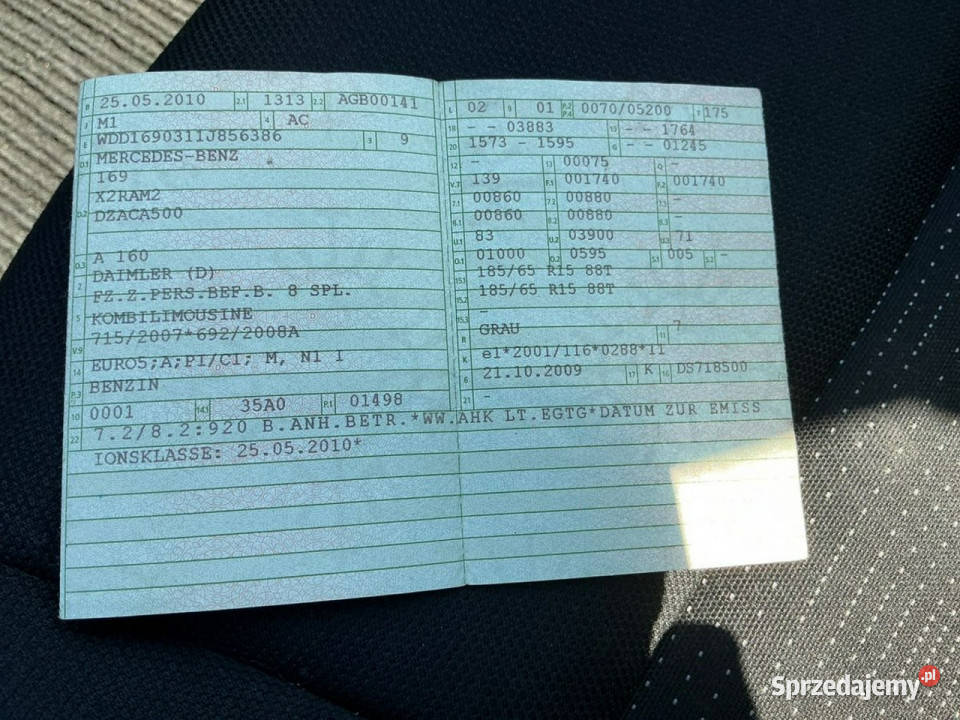 B 25.05.2010 2.1 1313 2.2 AGB00141
J M1 4 AC
E WDD1690311J856386 3 9
D.1 MERCEDES-BENZ
169
D.2 X2RAM2
DZACA500
D.3 A 160
2 DAIMLER (D)
FZ.Z.PERS.BEF.B. 8 SPL.
5 KOMBILIMOUSINE
V.9 715/2007*692/2008A
14 EURO5;A;PI/CI; M, N1 I
P.3 BENZIN
10 0001 14.1 35A0 P.1 01498
22 7.2/8.2:920 B.ANH.BETR.*WW.AHK LT.EGTG*DATUM ZUR EMISS
IONSKLASSE: 25.05.2010*
L 02 9 01 P.2 P.4 0070/05200 T 175
18 - - 03883 19 - - 1764
20 1573 - 1595 G - - 01245
12 - 13 00075 Q -
V.7 139 F.1 001740 F.2 001740
7.1 00860 7.2 00880 7.3 -
8.1 00860 8.2 00880 8.3 -
U.1 83 U.2 03900 U.3 71
O.1 01000 O.2 0595 S.1 005 S.2 -
15.1 185/65 R15 88T
15.2 185/65 R15 88T
15.3 -
R GRAU 11 7
K e1*2001/116*0288*11
6 21.10.2009 17 K 16 DS718500
21 -
Sprzedajemy.pl